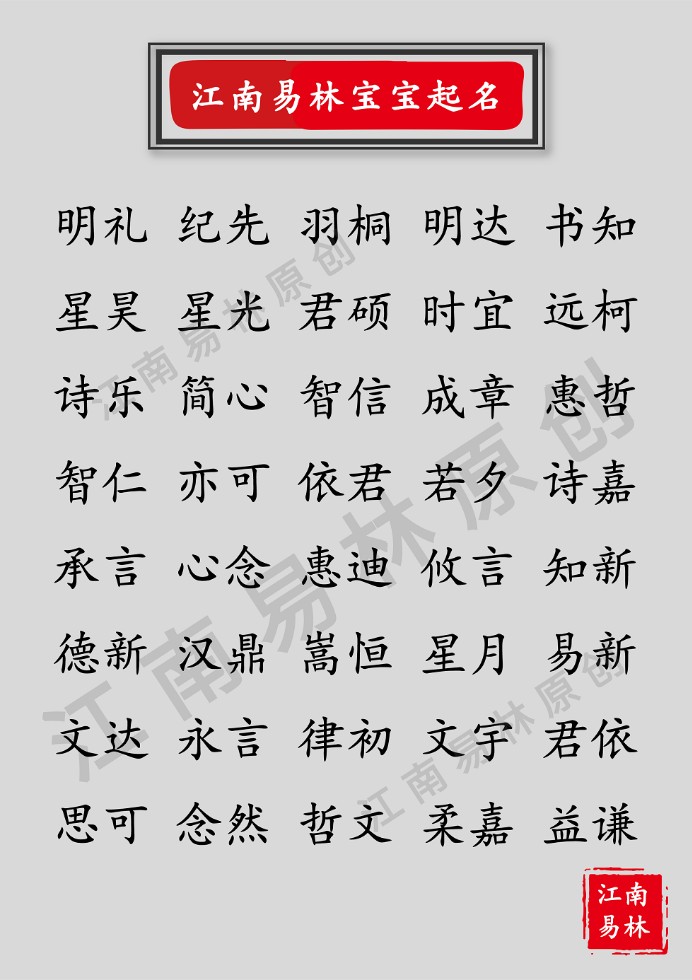 江南易林宝宝起名
明礼 纪先 羽桐 明达 书知
星昊 星光 君硕 时宜 远柯
诗乐 简心 智信 成章 惠哲
智仁 亦可 依君 若夕 诗嘉
承言 心念 惠迪 攸言 知新
德新 汉鼎 嵩恒 星月 易新
文达 永言 律初 文宇 君依
思可 念然 哲文 柔嘉 益谦
江南易林原创
江南易林原创
江南易林原创
江南
易林